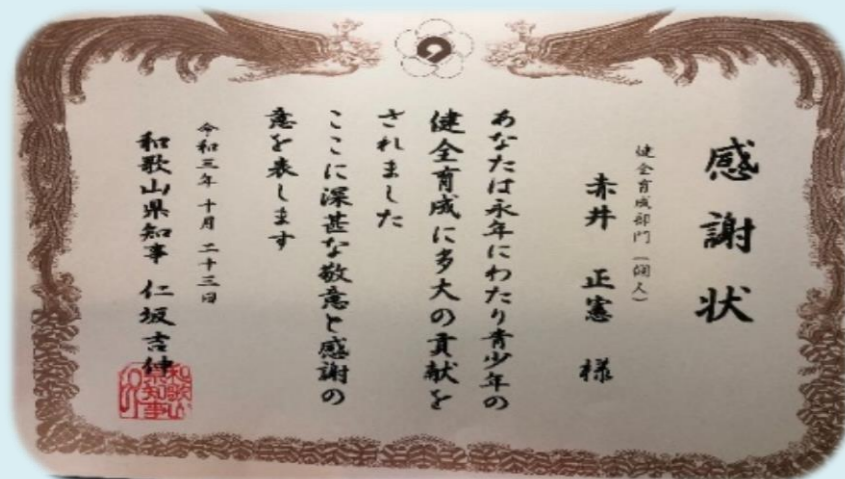 感謝状
健全育成部門(個人)
赤井 正憲 様
あなたは永年にわたり青少年の
健全育成に多大の貢献を
されました
ここに深甚な敬意と感謝の
意を表します
令和三年十月二十三日
和歌山県知事 仁坂吉伸
和歌山県知事之印